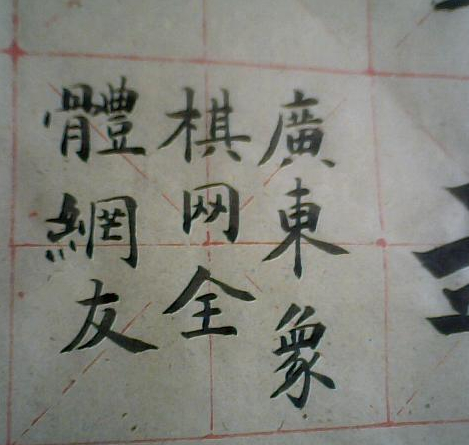 廣東象
棋网全
體網友